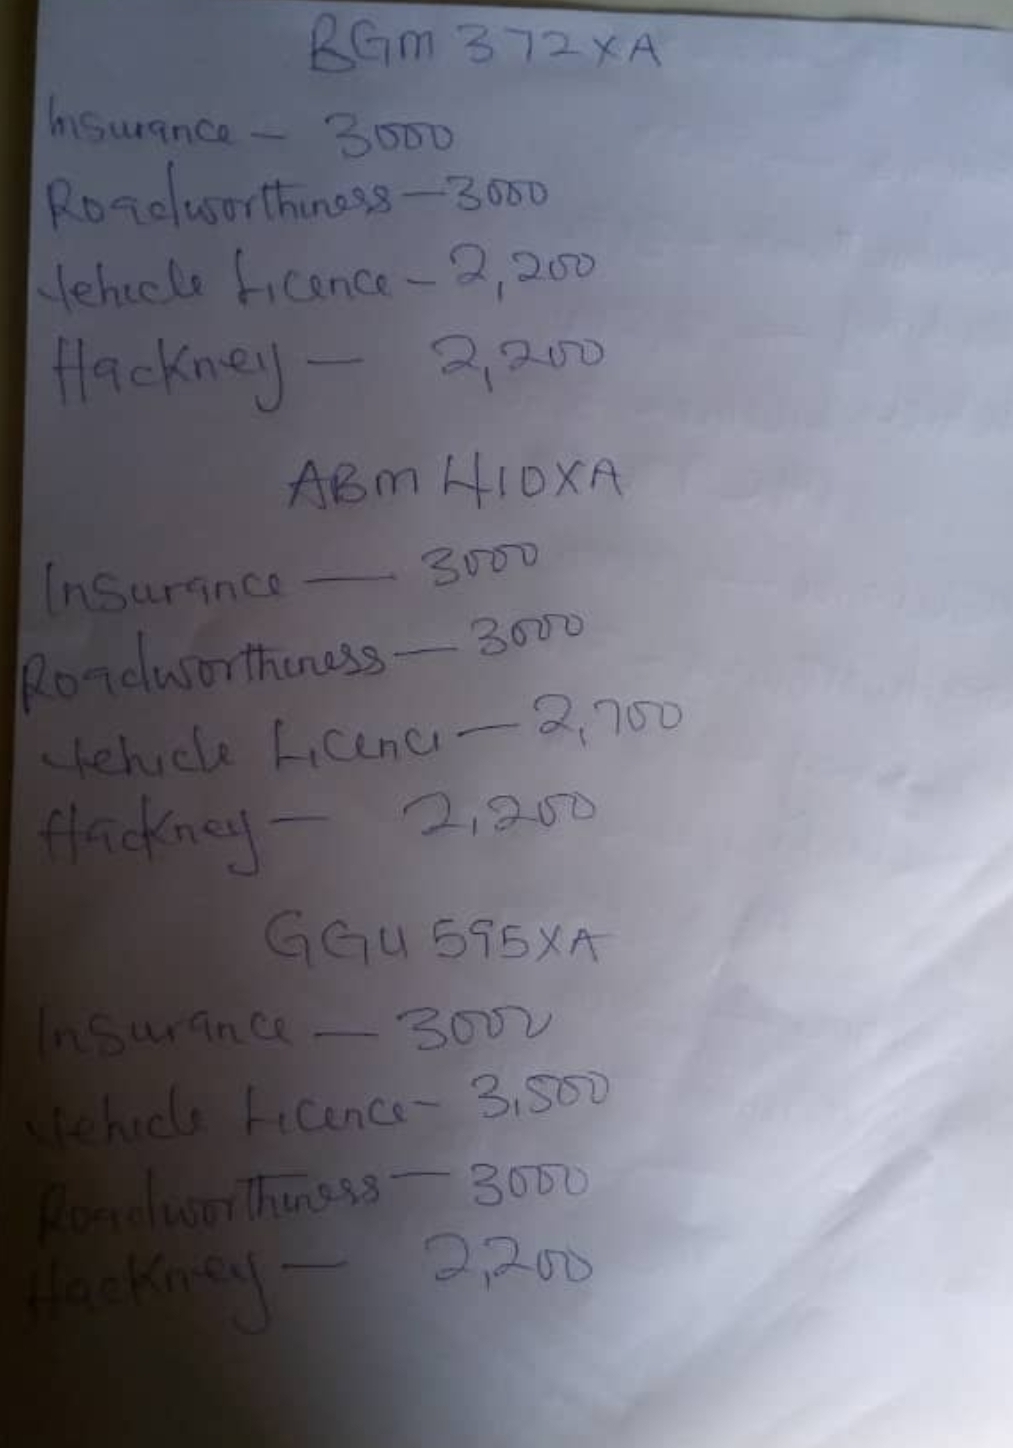 BGM 372XA
Insurance - 3000
Roadworthiness - 3000
Vehicle Licence - 2,200
Hackney - 2,200
ABM 410XA
Insurance - 3000
Roadworthiness - 3000
Vehicle Licence - 2,700
Hackney - 2,200
GGU 595XA
Insurance - 3000
Vehicle Licence - 3,500
Roadworthiness - 3000
Hackney - 2,200